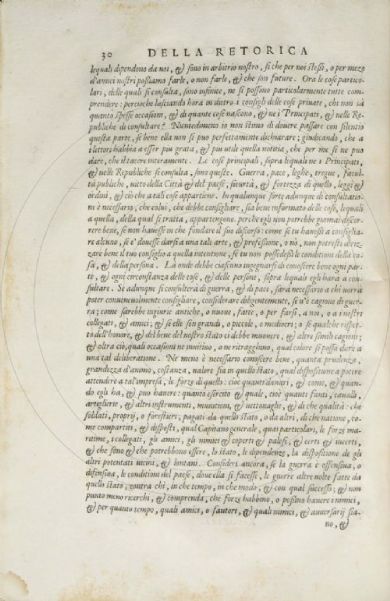 30 DELLA RETORICA
lequali dipendono da noi, & sono in arbitrio nostro, sì che per noi stessi, o per mezo
d'amici nostri possiamo farle, o non farle, & che son future. Ora le cose partico-
lari, delle quali si consulta, sono infinite, ne si possono particolarmente tutte com-
prendere: percioche lasciando hora in dietro i consigli delle cose private, chi non sà
quanto spesso occasioni, & da quante cose nascono, & ne i Principati, & nelle Re-
publiche di consultare? Nientedimeno io non stimo di dovere passare con silentio
questa parte, se bene ella non si può perfettamente dichiarare; giudicando, che a
i lettori habbia a esser più grata, & più utile quella notitia, che per me se ne può
dare, che il tacere interamente. Le cose principali, sopra lequali ne i Principati,
& nelle Republiche si consulta, sono queste. Guerra, pace, leghe, tregue, facul-
tà publiche, vitto della Città & del paese, sicurtà, & fortezza di quello, leggi &
ordini, & ciò che a tali cose appartiene. In qualunque sorte adunque di consultatio-
ne è necessario, che colui, che debbe consigliare, sia bene informato delle cose, lequali
a quella, della qual si tratta, appartengono. perche egli non potrebbe giamai discor-
rere bene, se non havesse in che fondare il suo discorso: come se tu havessi a consiglia-
re alcuno, se e' dovesse darsi a una tale arte, & professione, o nò, non potresti drizza-
zare bene il tuo consiglio a quella intentione, se tu non possedessi le condizioni della co-
sa, & della persona. La onde debbe ciascuno ingegnarsi di conoscere bene ogni par-
te, & ogni circonstanza delle cose, & delle persone, sopra lequali egli harà a con-
sultare. Se adunque si consulterà di guerra, & di pace, sarà necessario a chi vorrà
poter convenevolmente consigliare, considerare diligentemente, se v'è cagione di guer-
ra; come sarebbe ingiurie antiche, o nuove, fatte, o per farsi, a noi, o a i nostri
collegati, & amici; & se elle son grandi, o piccole, o mediocri; o se qualche rispet-
to dell'honore, & del bene del nostro stato ci debbe muovere, & altre simili cagioni;
& oltra ciò, quali occasioni ne invitino, o ne ritragghino, qual colore si possa dare a
una tal deliberatione. Ne meno è necessario conoscere bene, quanta prudenza,
grandezza d'animo, costanza, valore sia in questo stato, qual dispositione a potere
attendere a tal'impresa, le forze di quello: cioè quanti danari, & come, & quan-
do egli ha, & può havere: quanto esercito & quale, cioè quanti fanti, cavalli,
artiglierie, & altri instrumenti, munitioni, & vettovaglie, & di che qualità: che
soldati, proprij, o forestieri; pagati da quello stato, o da altri, di che natione, co-
me compartiti, & disposti, qual Capitano generale, quai particolari, le forze ma-
ritime, i collegati, gli amici, gli nimici & coperti & palesi, & certi & incerti,
& che sono & che potrebbono essere, lo stato, le dipendenze, la dispositione de gli
altri potentati vicini, & lontani. Consideri ancora, se la guerra è offensiva, o
difensiva, le condizioni del paese, dove ella si facesse, le guerre altre volte fatte da
quello stato, contra chi, in che tempo, in che modo, & con qual successo; & non
punto meno ricerchi, & comprenda, che forze habbino, o possino havere i nimici,
& per quanto tempo, quali amici, o fautori, & quali nimici, & aversarij sia-
no, &